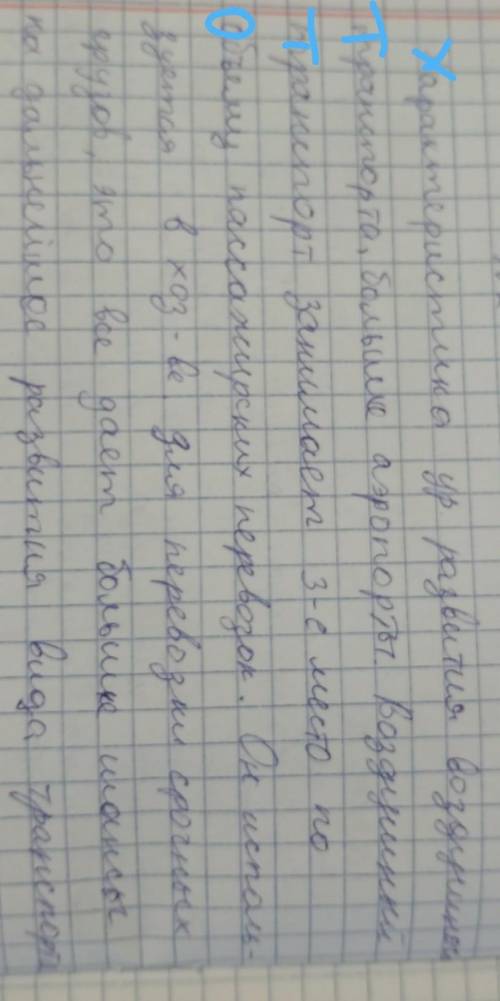 Характеристика ур развития воздушного
Транспорта, большие аэропорты. Воздушный
Транспорт занимает 3-е место по
Объему пассажирских перевозок. Он исполь-
зуется в хоз-ве для перевозки срочных
грузов, это все дает большие шансы
на дальнейшее развития вида транспорта